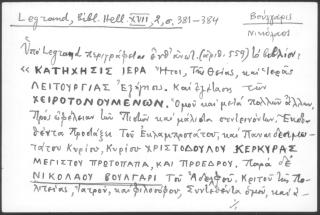 Legrand, Bibl. Hell. XVII, 2, σ, 381-384
Βούλγαρις
Νικόλαος
Ὑπὸ Legrand περιγράφεται ὑπ' ἀριθ. (ἀριθ. 559) τὸ βιβλίον:
« ΚΑΤΗΧΗΣΙΣ ΙΕΡΑ Ἤτοι, Τῆς Θείας, καὶ Ἱερᾶς
ΛΕΙΤΟΥΡΓΙΑΣ Ἐξήγησις. Καὶ ἐξέτασις τῶν
ΧΕΙΡΟΤΟΝΟΥΜΕΝΩΝ. Ὁμοῦ καὶ μετὰ πολλῶν ἄλλων,
Πρὸς ὠφέλειαν τῶν Πιστῶν καὶ μάλιστα συντεινόντων. Ἐκδο-
θέντα προστάξει Τοῦ Εὐλαμπροτάτου, καὶ Παναιδεσιμω-
τάτου Κυρίου, Κυρίου ΧΡΙΣΤΟΔΟΥΛΟΥ ΚΕΡΚΥΡΑΣ
ΜΕΓΙΣΤΟΥ ΠΡΩΤΟΠΑΠΑ, ΚΑΙ ΠΡΟΕΔΡΟΥ. Παρὰ δὲ
ΝΙΚΟΛΑΟΥ ΒΟΥΛΓΑΡΙ Τοῦ Ἀδελφοῦ. Κριτοῦ τῆς Πο-
λιτείας, Ἰατροῦ, καὶ φιλοσόφου, Συντεθέντα ὁμοῦ, καὶ ἀ-